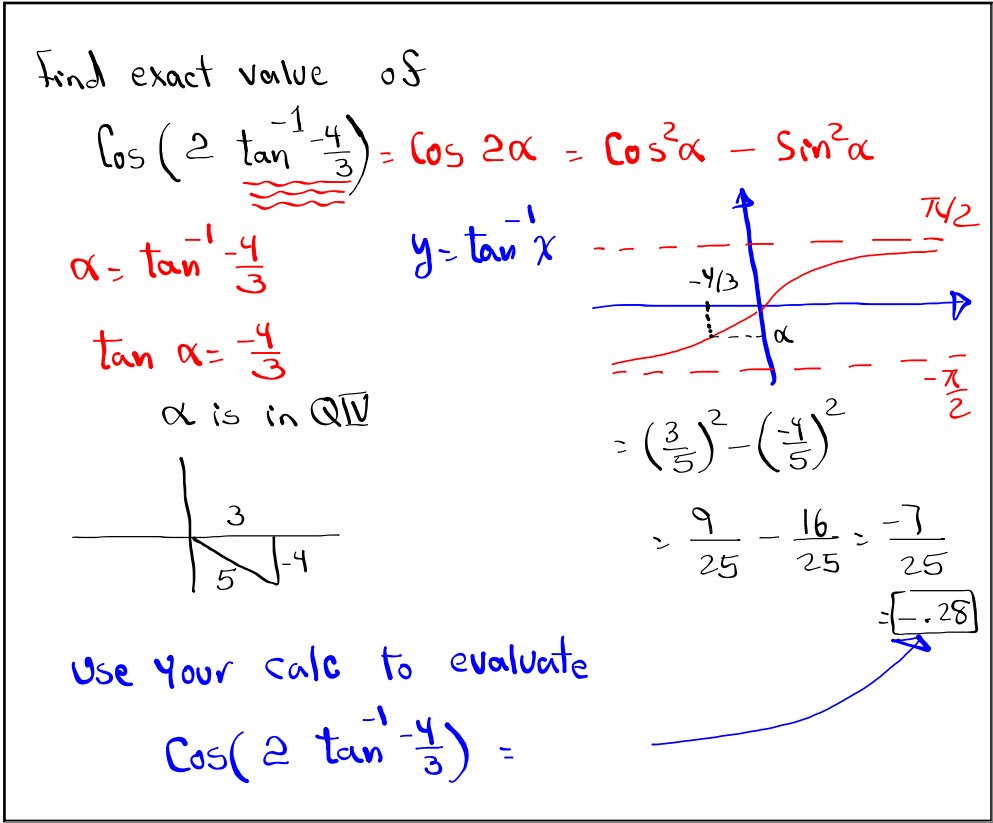 Find exact value of
Cos(2 tan⁻¹ -4/3) = Cos 2α = Cos²α - Sin²α
α = tan⁻¹ -4/3
y = tan⁻¹ x
π/2
-4/3
α
-π/2
tan α = -4/3
α is in QIV
3
5
-4
= (3/5)² - (-4/5)²
= 9/25 - 16/25 = -7/25
= -.28
Use your calc to evaluate
Cos(2 tan⁻¹ -4/3) =